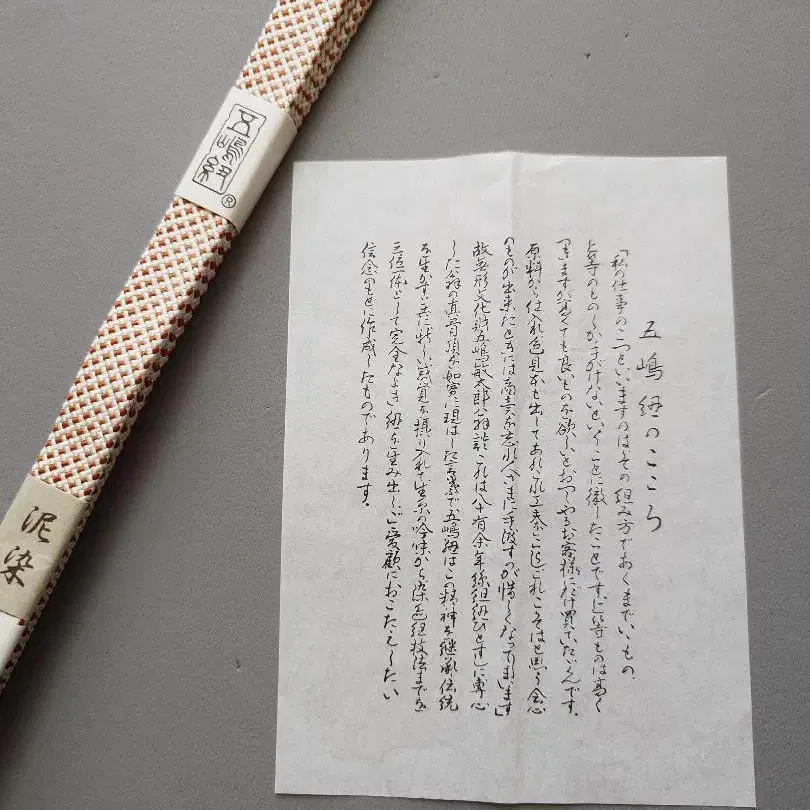 五嶋紐
®
泥染
五嶋紐のこころ
「私の仕事のこつといいますのはその組み方であくまでいゝもの、
上等のものしか手がけないということに徹したことです。上等ものは高く
つきますが高くても良いものを欲しいとおっしゃるお客様にだけ買っていたゞくんです。
原料から仕入れ色見本も出してあれこれ工夫しこれこそはと思う会心
のものが出来たときには商売を忘れ人さまに手渡すのが惜しくなってしまいます」
故無形文化財五嶋敏太郎翁談 これは八十有余年絲組紐ひとすじに専心
した翁の真骨頂を如実に現はした言葉で五嶋紐はこの精神を継承伝統
を生かすと共に新しい感覚を摂り入れて生糸の吟味から染色組技法までを
三位一体として完全なよき紐を生み出しご愛顧におこたえしたい
信念のもとに作成したものであります。